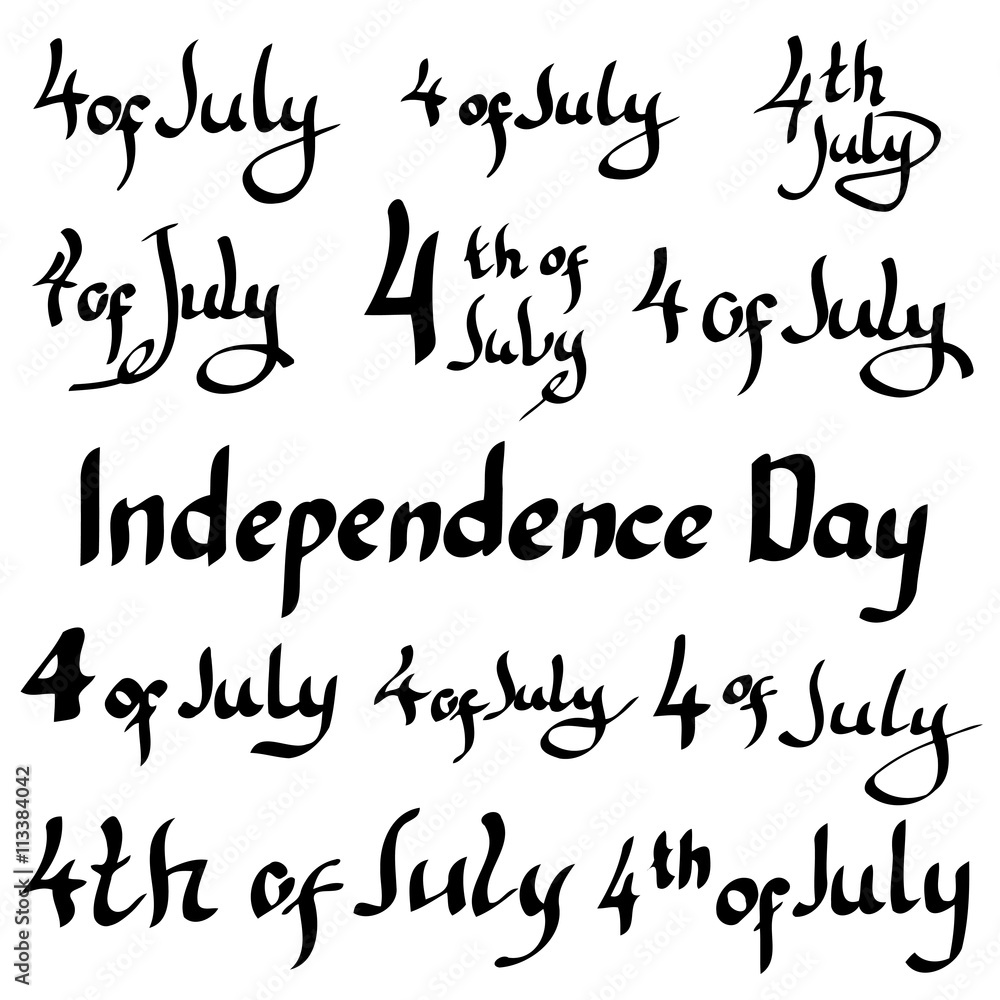 4 of July
4 of July
4th
July
4 of July
4 th of
July
4 of July
Independence Day
4 of July
4 of July
4 of July
4th of July
4th of July
Adobe Stock | #113384042